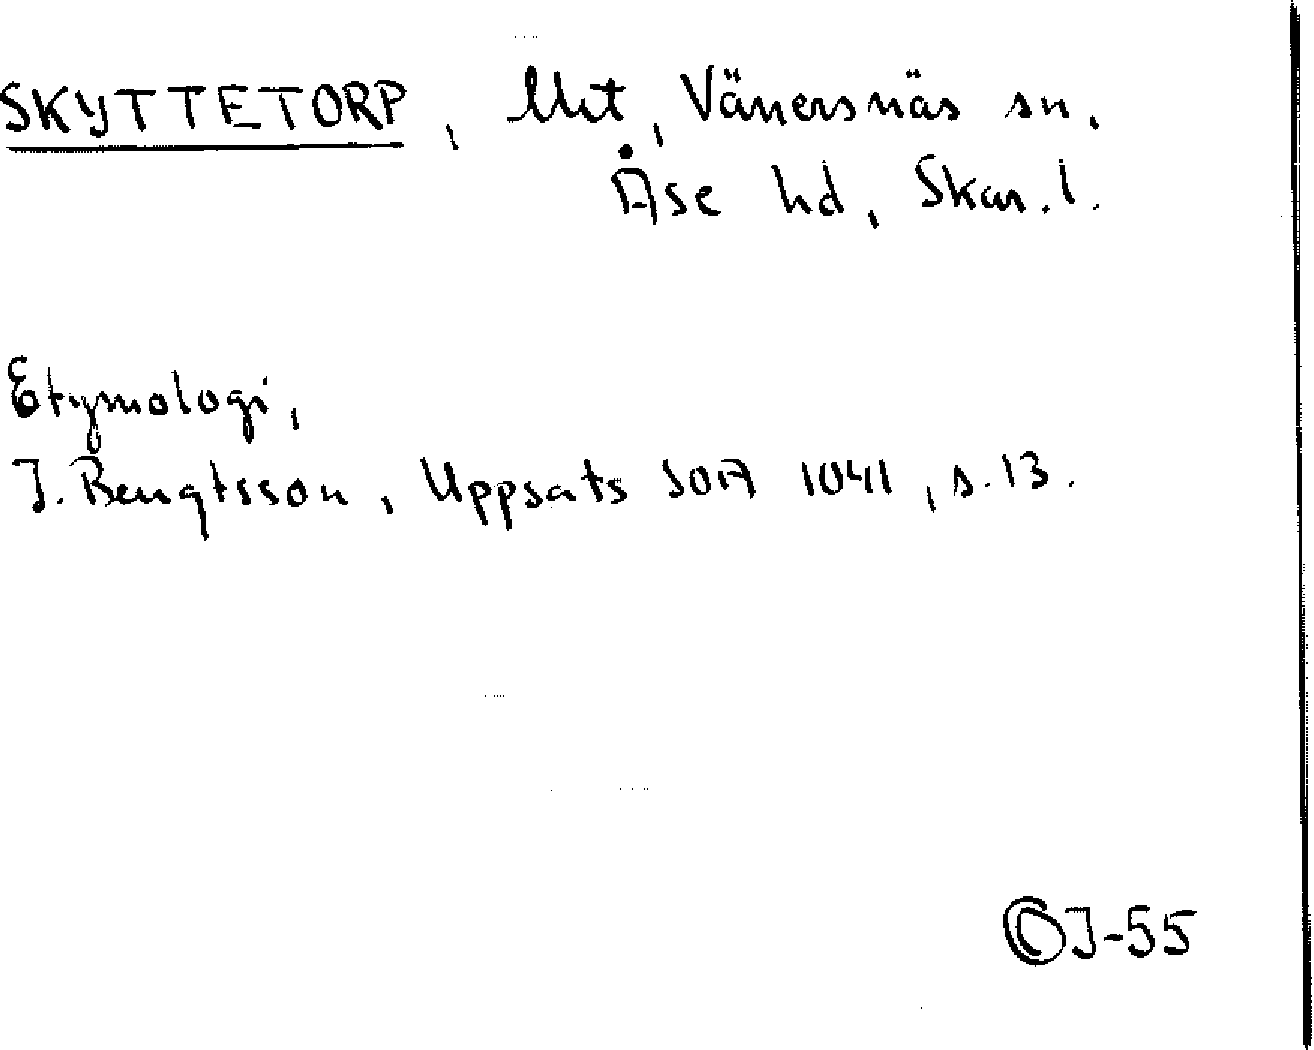 SKYTTETORP, Uht, Vänersnäs sn.
Åse hd, Skar.l.
Etymologi,
J. Bengtsson, Uppsats SOA 1041, s.13.
ÖJ-55